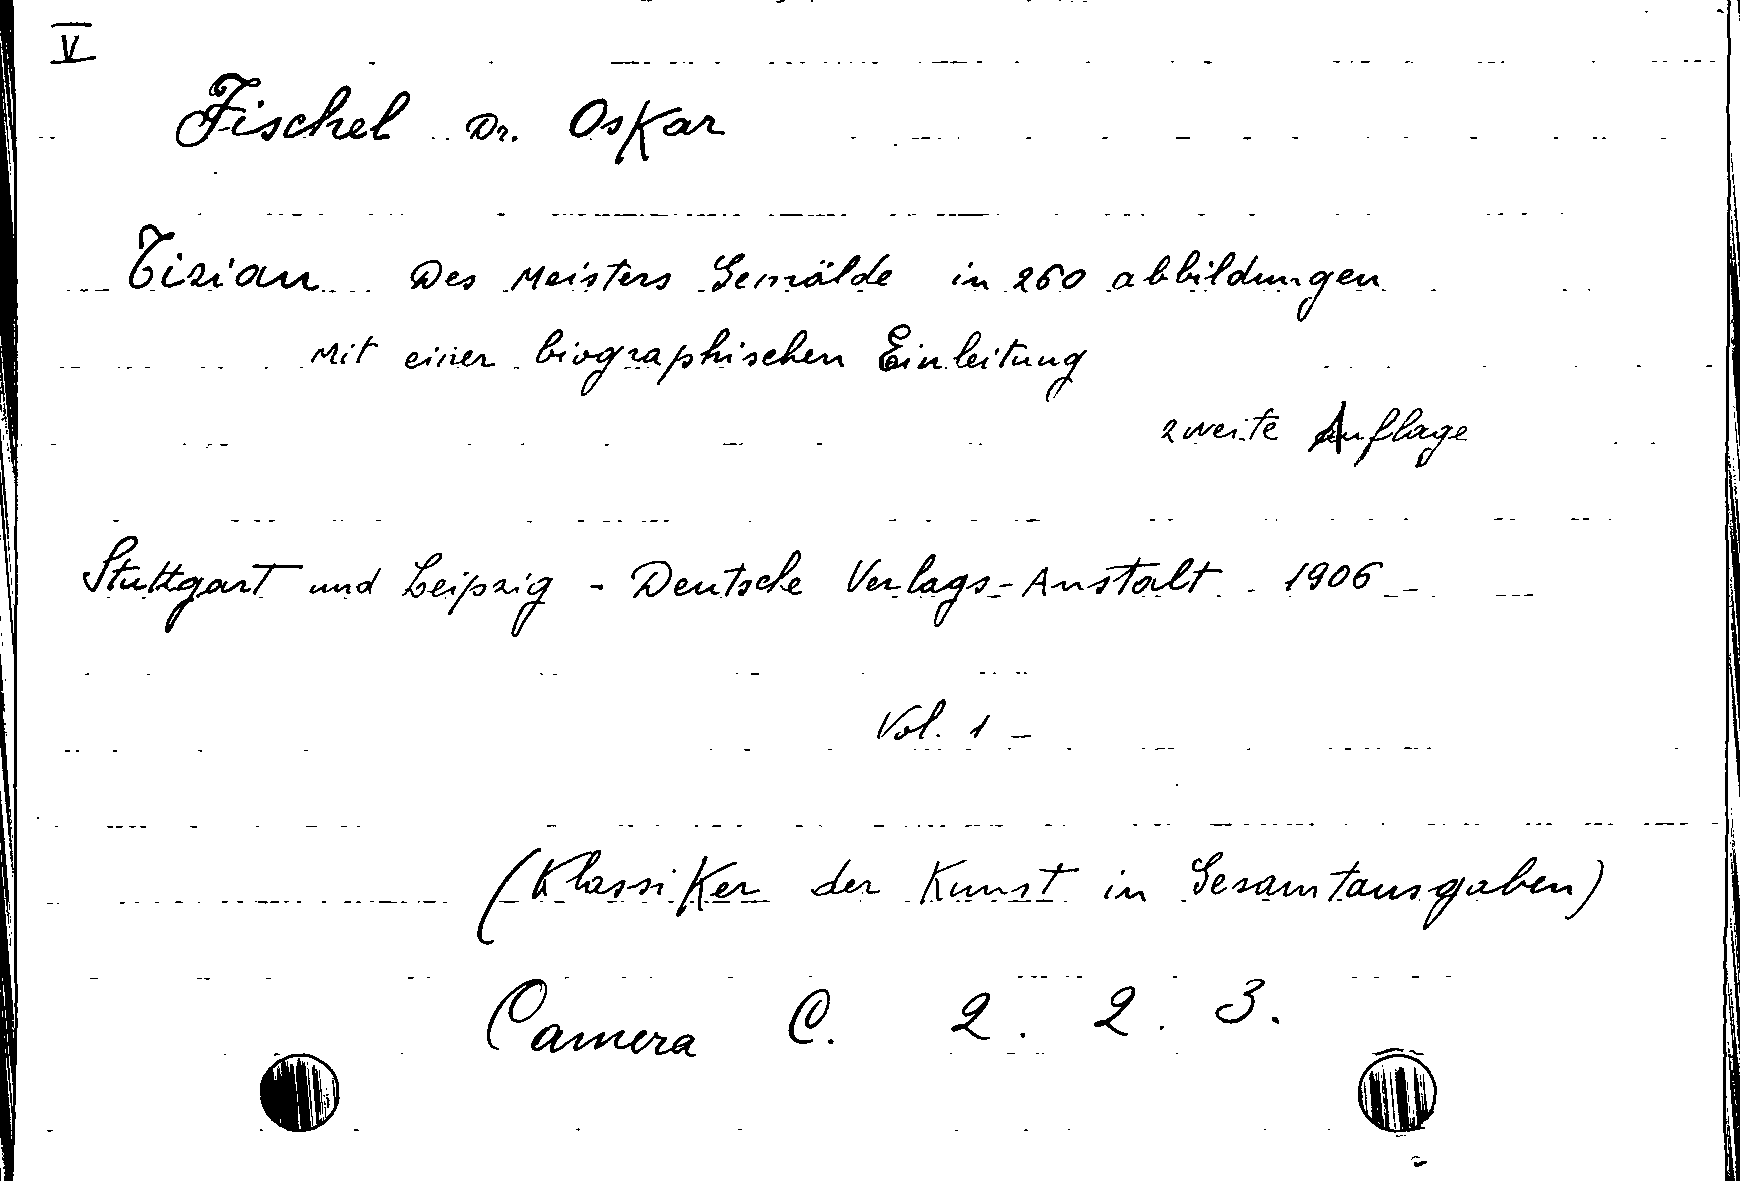 V
Fischel Dr. Oskar
Tizian Des Meisters Gemälde in 260 abbildungen
mit einer biographischen Einleitung
zweite Auflage
Stuttgart und Leipzig - Deutsche Verlags-Anstalt 1906 -
Vol. 1 -
(Klassiker der Kunst in Gesamtausgaben)
Camera C. 2. 2. 3.